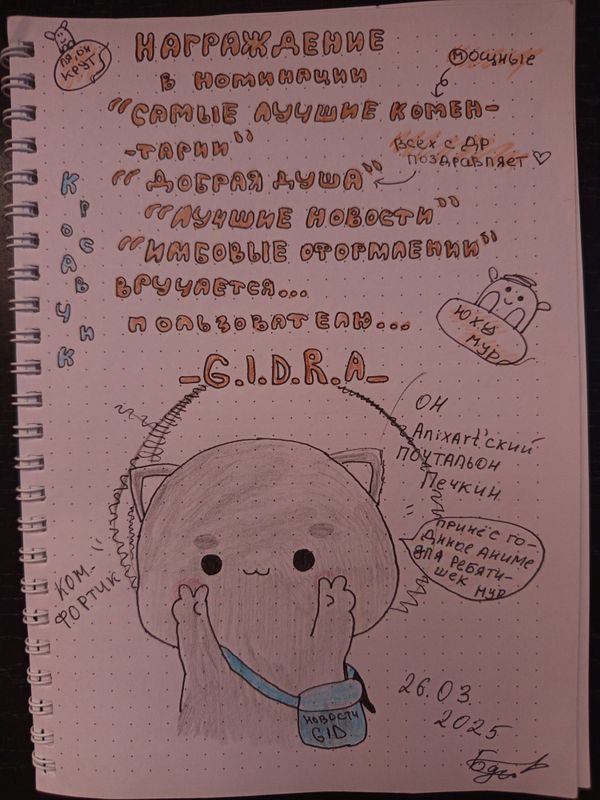 ЛЯ, ОН
КРУТ
НАГРАЖДЕНИЕ
В НОМИНАЦИИ
МОЩНЫЕ
“САМЫЕ ЛУЧШИЕ КОМЕН-
-ТАРИИ”
ВСЕХ С ДР
ПОЗДРАВЛЯЕТ ♡
“ДОБРАЯ ДУША”
“ЛУЧШИЕ НОВОСТИ”
“ИМБОВЫЕ ОФОРМЛЕНИИ”
ВРУЧАЕТСЯ...
ПОЛЬЗОВАТЕЛЮ...
КРАСАВЧИК
ЮХУ
МУР
_G.I.D.R.A_
ОН
AnixArt'ский
ПОЧТАЛЬОН
Печкин
ПРИНЁС ГО-
ДНОЕ АНИМЕ
ДЛЯ РЕБЯТИ-
ШЕК МУР
КОМ-
ФОРТИК
НОВОСТИ
GID
26.03.
2025